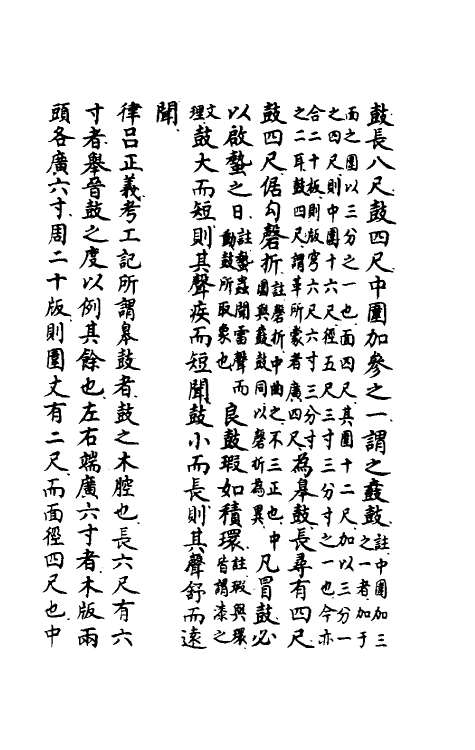 鼓長八尺鼓四尺中圍加參之一謂之鼖鼓註中圍加三之一者加于
面之圍以三分之一也面四尺其圍十二尺加以三分一之四尺則中圍十六尺徑五尺三寸三分寸之一也今亦
合二十板則版穹六尺六寸三分寸之二耳鼓四尺謂革所蒙者廣四尺為臯鼓長尋有四尺
鼓四尺倨勾磬折註磬折中曲之不三正也中圍與鼖鼓同以磬折為異凡冒鼓必
以啟蟄之日註蟄蟲聞雷聲而動鼓所取象也良鼓瑕如積環註瑕與環皆謂漆之
文理鼓大而短則其聲疾而短聞鼓小而長則其聲舒而遠
聞
律呂正義考工記所謂臯鼓者鼓之木腔也長六尺有六
寸者舉晉鼓之度以例其餘也左右端廣六寸者木版兩
頭各廣六寸周二十版則圍丈有二尺而面徑四尺也中